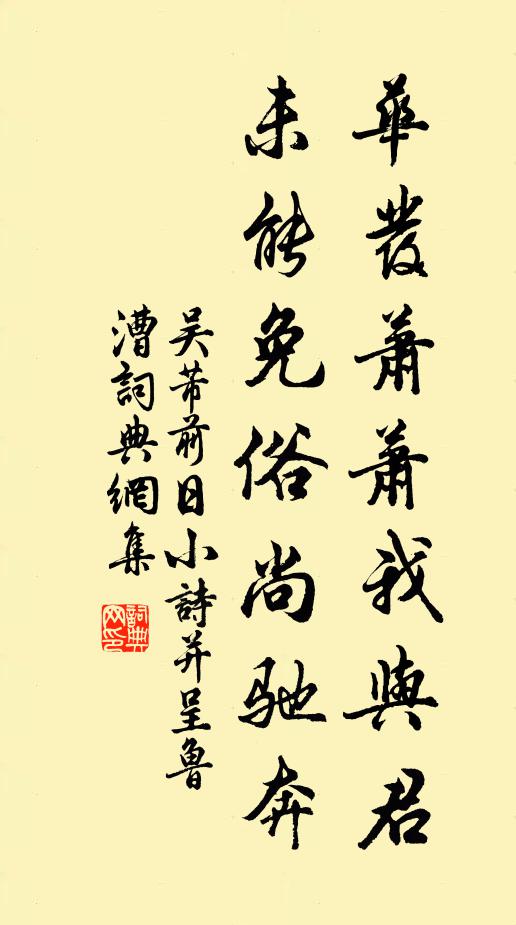 華發蕭蕭我與君
未能免俗尚馳奔
吳芾前日小詩并呈魯
漕詞典網集
詞典網印